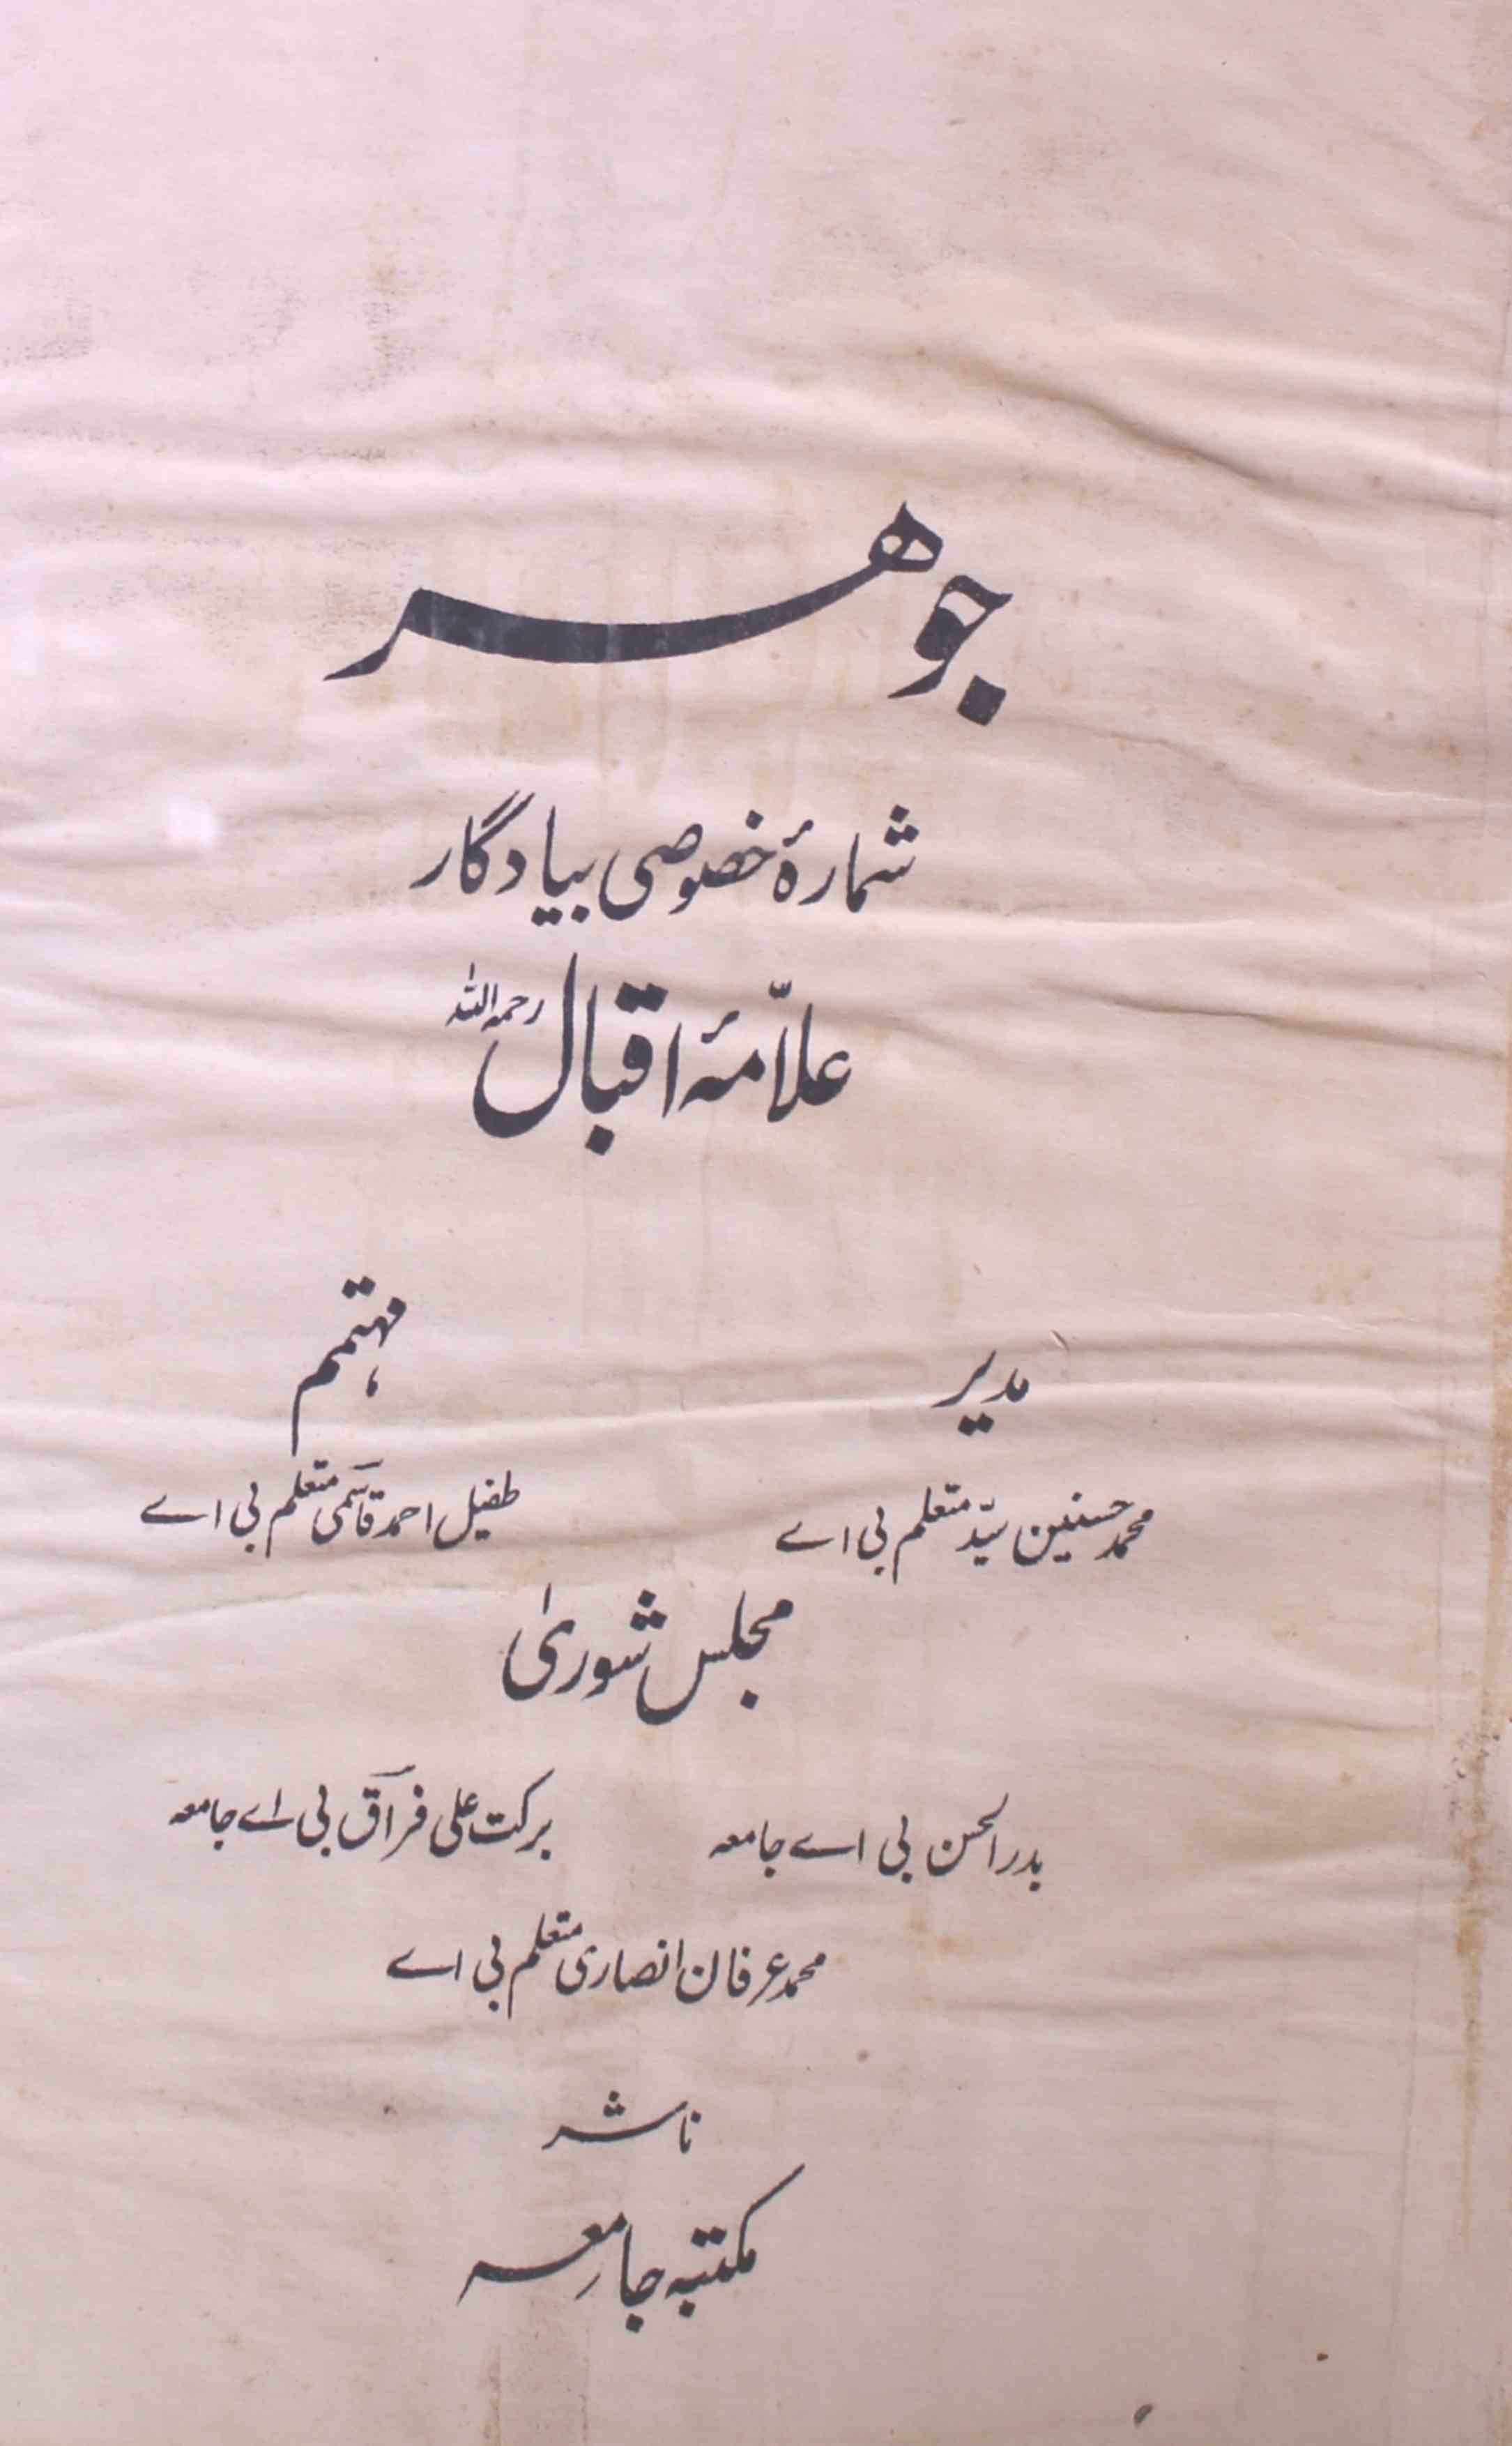 جوهر
شمارۂ خصوصی بیادگار
علاّمۂ اقبال رحمہ اللہ
مدیر
مہتمم
محمد حسنین سیّد متعلم بی اے
طفیل احمد قاسمی متعلم بی اے
مجلس شوریٰ
بدر الحسن بی اے جامعہ
برکت علی فراق بی اے جامعہ
محمد عرفان انصاری متعلم بی اے
ناشر
مکتبہ جامِعہ